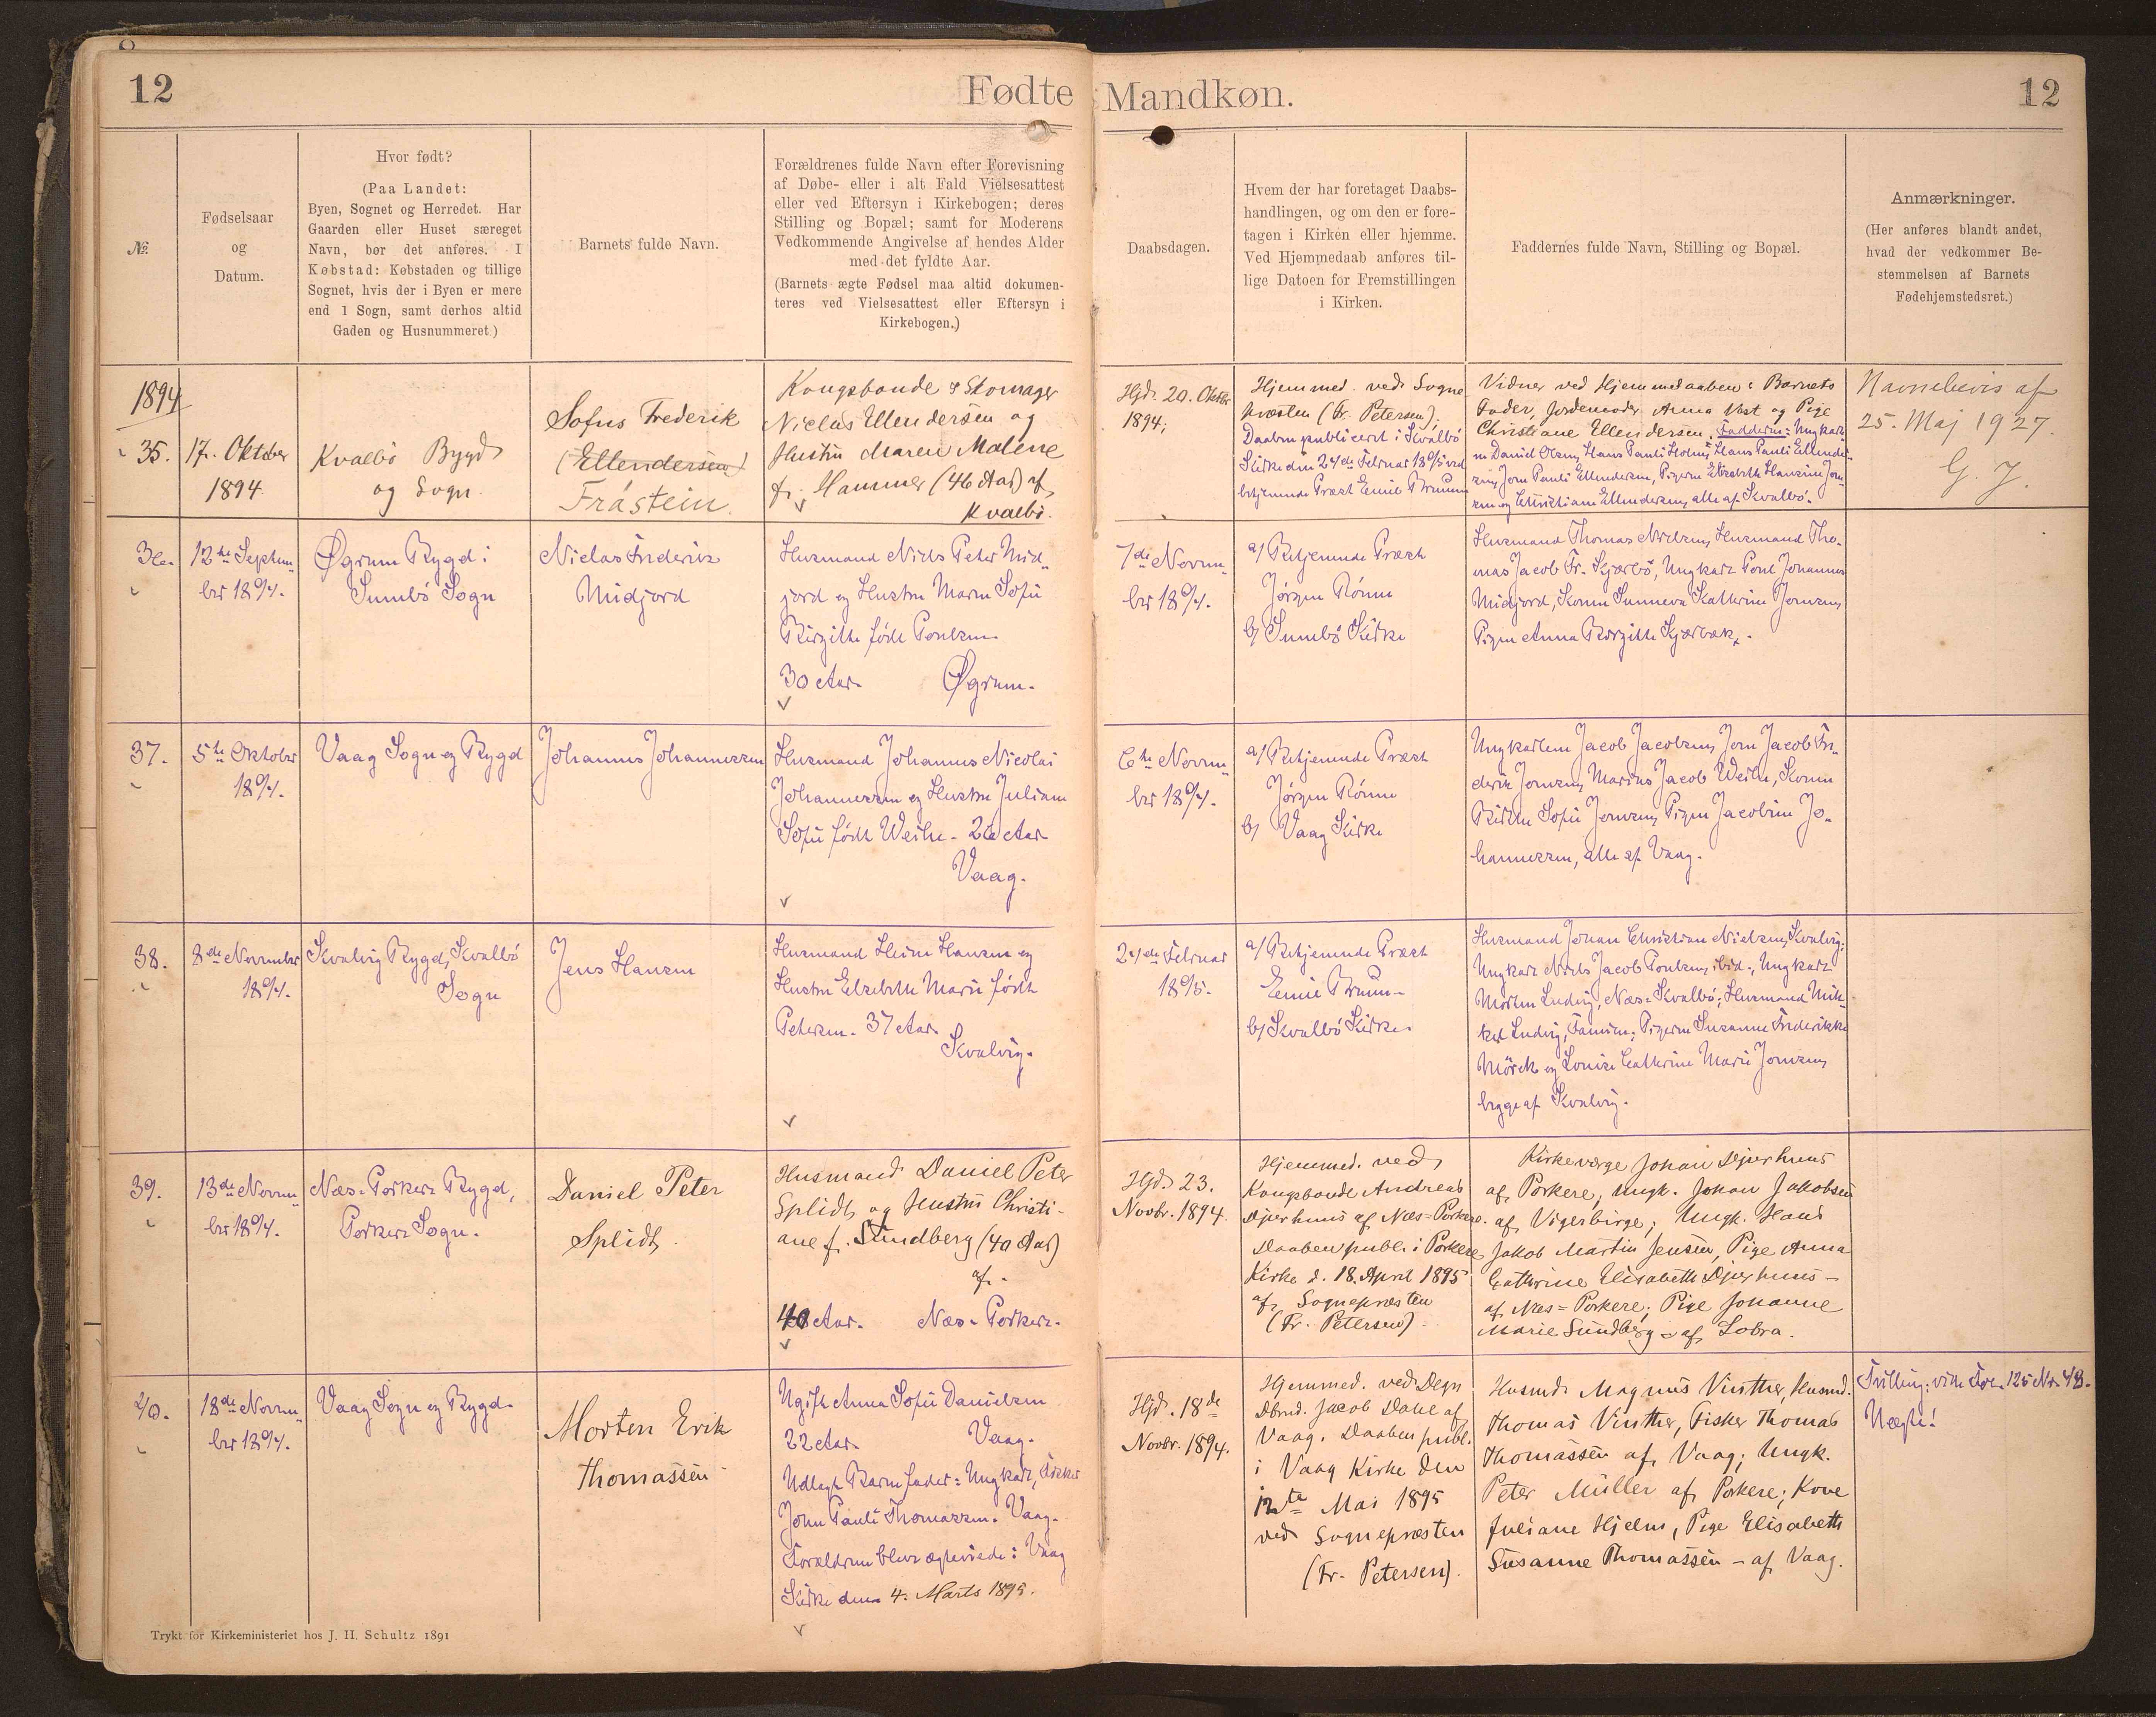 12
Fødte Mandkøn.
12
№.
Fødselsaar
og
Datum.
Hvor født?
(Paa Landet:
Byen, Sognet og Herredet. Har
Gaarden eller Huset særeget
Navn, bør det anføres. I
Købstad: Købstaden og tillige
Sognet, hvis der i Byen er mere
end 1 Sogn, samt derhos altid
Gaden og Husnummeret.)
Barnets fulde Navn.
Forældrenes fulde Navn efter Forevisning
af Døbe- eller i alt Fald Vielsesattest
eller ved Eftersyn i Kirkebogen; deres
Stilling og Bopæl; samt for Moderens
Vedkommende Angivelse af hendes Alder
med det fyldte Aar.
(Barnets ægte Fødsel maa altid dokumen-
teres ved Vielsesattest eller Eftersyn i
Kirkebogen.)
Daabsdagen.
Hvem der har foretaget Daabs-
handlingen, og om den er fore-
tagen i Kirken eller hjemme.
Ved Hjemmedaab anføres til-
lige Datoen for Fremstillingen
i Kirken.
Faddernes fulde Navn, Stilling og Bopæl.
Anmærkninger.
(Her anføres blandt andet,
hvad der vedkommer Be-
stemmelsen af Barnets
Fødehjemstedsret.)
1894
35.
17. Oktober
1894
Kvalbö Bygd
og Sogn.
Sofus Frederik
(Ellendersen)
Frástein.
Kongsbonde & Skomager
Niclas Ellendersen og
Hustru Maren Malene
f. Hammer (46 Aar) af
Kvalbö.
Hjd. 20. Oktbr
1894;
Hjemmed. ved Sogne
præsten (Fr. Petersen);
Daaben publiceret i Kvalbö
Kirke den 24de Februar 1895 ved
betjenende Præst Emil Bruun
Vidner ved Hjemmedaaben: Barnets
Fader, Jordemoder Anna Vest og Pige
Christiane Ellendersen. Fadderne: Ungkarle-
ne Daniel Olsen, Hans Pauli Holm, Hans Pauli Ellender-
sen, Jorn Pauli Ellendersen, Pigerne Elisabeth Hansine Jen-
sen og Christiane Ellendersen, alle af Kvalbö.
Navnebevis af
25. Maj 1927.
G. J.
36.
12te Septem-
ber 1894.
Øgrum Bygd i
Sumbö Sogn
Niclas Frederik
Midjord
Husmand Niels Peter Mid-
jord og Hustru Maren Sofie
Birgitte født Poulsen.
30 Aar. Øgrum.
7de Novem-
ber 1894.
a) Betjenende Præst
Jörgen Rönne
b) Sumbö Kirke
Husmand Thomas Nielsen, Husmand Tho-
mas Jacob Fr. Kjærbo, Ungkarl Poul Johannes
Midjord, Konen Sunneva Katherine Joensen,
Pigen Anna Birgitte Kjærbæk.
37.
5te Oktober
1894.
Vaag Sogn og Bygd
Johannes Johannessen
Husmand Johannes Nicolai
Johannessen og Hustru Juliane
Sofie født Weihe - 26 Aar
Vaag.
6te Novem-
ber 1894.
a) Betjenende Præst
Jörgen Rönne
b) Vaag Kirke
Ungkarlene Jacob Jacobsen, Joen Jacob Fre-
derik Joensen, Marius Jacob Weihe, Konen
Sofie Joensen, Pigen Jacobine Jo-
hannessen, alle af Vaag.
38.
8de November
1894.
Kvalvig Bygd, Kvalbö
Sogn
Jens Hansen
Husmand Heine Hansen og
Hustru Elsebeth Marie født
Petersen. 37 Aar.
Kvalvig.
24de Februar
1895.
a) Betjenende Præst
Emil Bruun
b) Kvalbö Kirke.
Husmand Johan Christian Nielsen, Kvalvig;
Ungkarl Niels Jacob Poulsen, ibid., Ungkarl
Morten Ludvig, Næs-Kvalbö; Husmand Mik-
kel Ludvig, Famien; Pigerne Susanne Frederikke
Mörch og Louise Cathrine Marie Joensen,
begge af Kvalvig.
39.
13de Novem-
ber 1894.
Næs-Porkere Bygd,
Porkere Sogn.
Daniel Peter
Splidt
Husmand Daniel Peter
Splidt og Hustru Christi-
ane f. Sundberg (40 Aar)
af.
40 Aar. Næs-Porkere.
Hjd. 23.
Novbr. 1894.
Hjemmed. ved
Kongsbonde Andreas
Djurhuus af Næs=Porkere.
Daaben publ. i Porkere
Kirke d. 18. April 1895
af Sognepræsten
(Fr. Petersen)
Kirkeværge Johan Djurhuus
af Porkere; Ungk. Johan Jakobsen
af Vigerbirge; Ungk. Hans
Jakob Martin Jensen, Pige Anna
Cathrine Elisabeth Djurhuus -
af Næs=Porkere; Pige Johanne
Marie Sundberg - af Lobra.
40.
18de Novem-
ber 1894.
Vaag Sogn og Bygd.
Morten Erik
Thomassen
Ugift Anna Sofie Danielsen
22 Aar. Vaag.
Udlagt Barnefader: Ungkarl, Fisker
John Pauli Thomassen. Vaag.
Forældrene bleve ægteviede i Vaag
Kirke den 4. Marts 1895.
Hjd. 18de
Novbr. 1894.
Hjemmed. ved Degn
Dbmd. Jacob Dahl af
Vaag. Daaben publ.
i Vaag Kirke den
12te Mai 1895
ved Sognepræsten
(Fr. Petersen).
Husmd. Magnus Vinther, Husmd.
Thomas Vinther, Fisker Thomas
Thomassen af Vaag; Ungk.
Peter Müller af Porkere; Kone
Juliane Hjelm, Pige Elisabeth
Susanne Thomassen - af Vaag.
Tvilling; vide Fol. 125 Nr. 48.
Uægte!
Trykt for Kirkeministeriet hos J. H. Schultz 1891